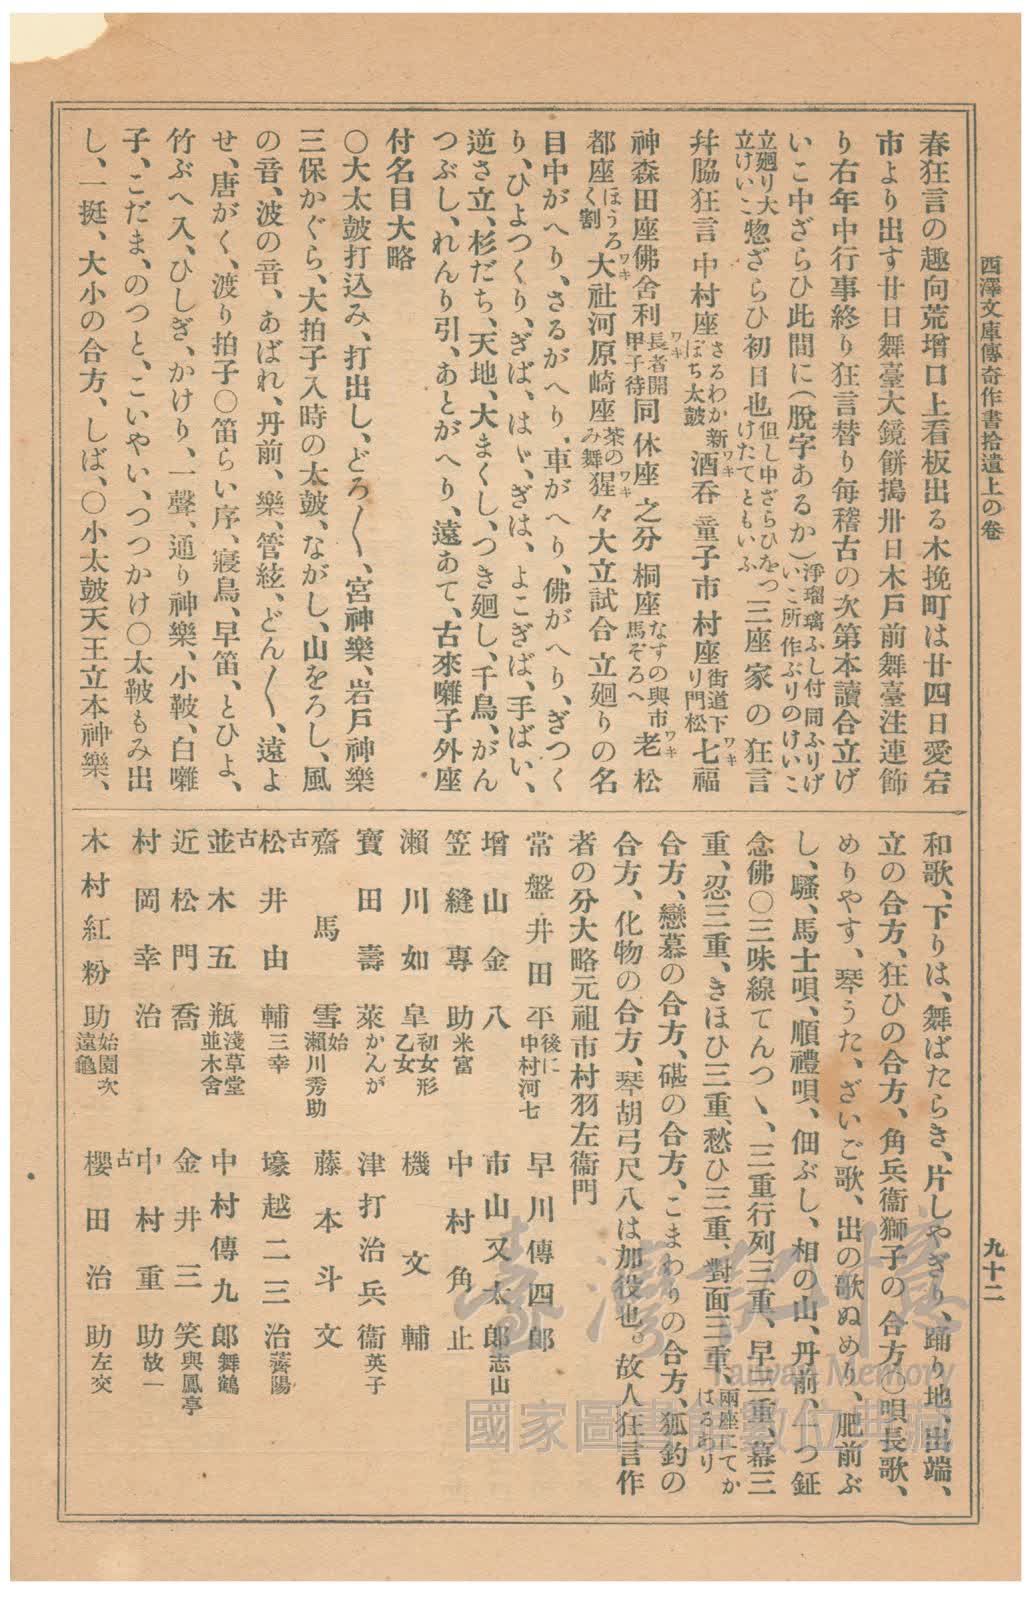 西澤文庫傳奇作書拾遺上の卷
九十二
春狂言の趣向荒增口上看板出る木挽町は廿四日愛宕
市より出す廿日舞臺大鏡餅搗卅日木戸前舞臺注連飾
り右年中行事終り狂言替り毎稽古の次第本讀合立げ
いこ中ざらひ此間に(脫字あるか)淨瑠璃ふし付同ふりげいこ所作ぶりのけいこ
立廻り大立けいこ惣ざらひ初日也但し中ざらひをつけたてともいふ三座家の狂言
幷脇狂言中村座さるわか新ぼち太鼓酒呑ワキ童子市村座街道下り門松七ワキ福
神森田座佛舍利長者開甲子待ワキ同休座之分桐座なすの與市馬ぞろへ老ワキ松
都座ほうろく割大ワキ社河原崎座茶のみ舞猩ワキ々大立試合立廻りの名
目中がへり、さるがへり、車がへり、佛がへり、ぎつく
り、ひよつくり、ぎば、はゞ、ぎは、よこぎば、手ばい、
逆さ立、杉だち、天地、大まくし、つき廻し、千鳥、がん
つぶし、れんり引、あとがへり、遠あて、古來囃子外座
付名目大略
○大太鼓打込み、打出し、どろ〱、宮神樂、岩戸神樂
三保かぐら、大拍子入時の太鼓、ながし、山をろし、風
の音、波の音、あばれ、丹前、樂、管絃、どん〱、遠よ
せ、唐がく、渡り拍子○笛らい序、寢鳥、早笛、とひよ、
竹ぶへ入、ひしぎ、かけり、一聲、通り神樂、小鞁、白囃
子、こだま、のつと、こいやい、つつかけ○太鞁もみ出
し、一挺、大小の合方、しば、○小太鼓天王立本神樂、
和歌、下りは、舞ばたらき、片しやぎり、踊り地、出端、
立の合方、狂ひの合方、角兵衞獅子の合方○唄長歌、
めりやす、琴うた、ざいご歌、出の歌ぬめり、肥前ぶ
し、騷、馬士唄、順禮唄、佃ぶし、相の山、丹前、一つ鉦
念佛○三味線てんつゝ、三重行列三重、早三重、幕三
重、忍三重、きほひ三重、愁ひ三重、對面三重、兩座にてかはるあり
合方、戀慕の合方、碪の合方、こまわりの合方、狐釣の
合方、化物の合方、琴胡弓尺八は加役也。故人狂言作
者の分大略元祖市村羽左衞門
常盤井田平後に中村河七　早川傳四郎
增山金八　市山又太郎志山
笠縫專助米富　中村角止
瀨川如皐初女形乙女　機文輔
寶田壽萊かんが　津打治兵衞英子
齋馬雪始瀨川秀助　藤本斗文
古松井由輔三幸　壕越二三治薺陽
古並木五瓶淺草堂並木舍　中村傳九郎舞鶴
近松門喬　金井三笑與鳳亭
村岡幸治　古中村重助故一
木村紅粉助始園次遠龜　櫻田治助左交
臺灣記憶
Taiwan Memory
國家圖書館數位典藏